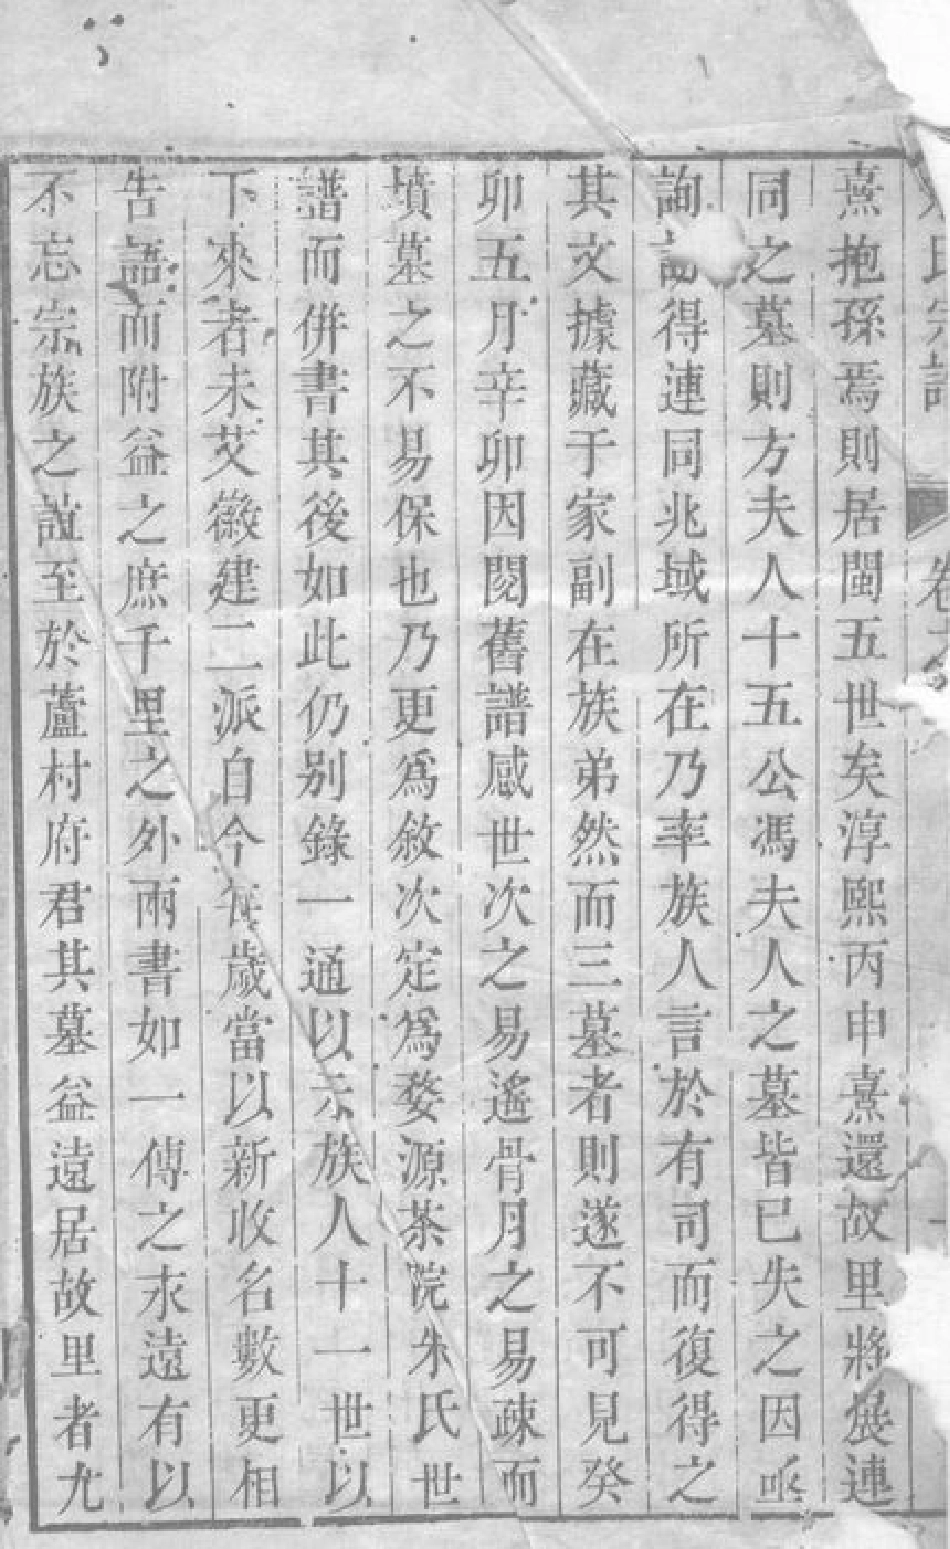 氏宗譜 卷之 一
熹抱孫焉則居閩五世矣淳熙丙申熹還故里將展連
同之墓則方夫人十五公馮夫人之墓皆已失之因亟
詢訪得連同兆域所在乃率族人言於有司而復得之
其文據藏于家副在族弟然而三墓者則遂不可見癸
卯五月辛卯因閱舊譜感世次之易遙骨月之易疎而
墳墓之不易保也乃更爲敘次定爲婺源茶院朱氏世
譜而併書其後如此仍别錄一通以示族人十一世以
下來者未艾徽建二派自今每歲當以新收名數更相
告語而附益之庶千里之外兩書如一傳之永遠有以
不忘宗族之誼至於蘆村府君其墓益遠居故里者尤